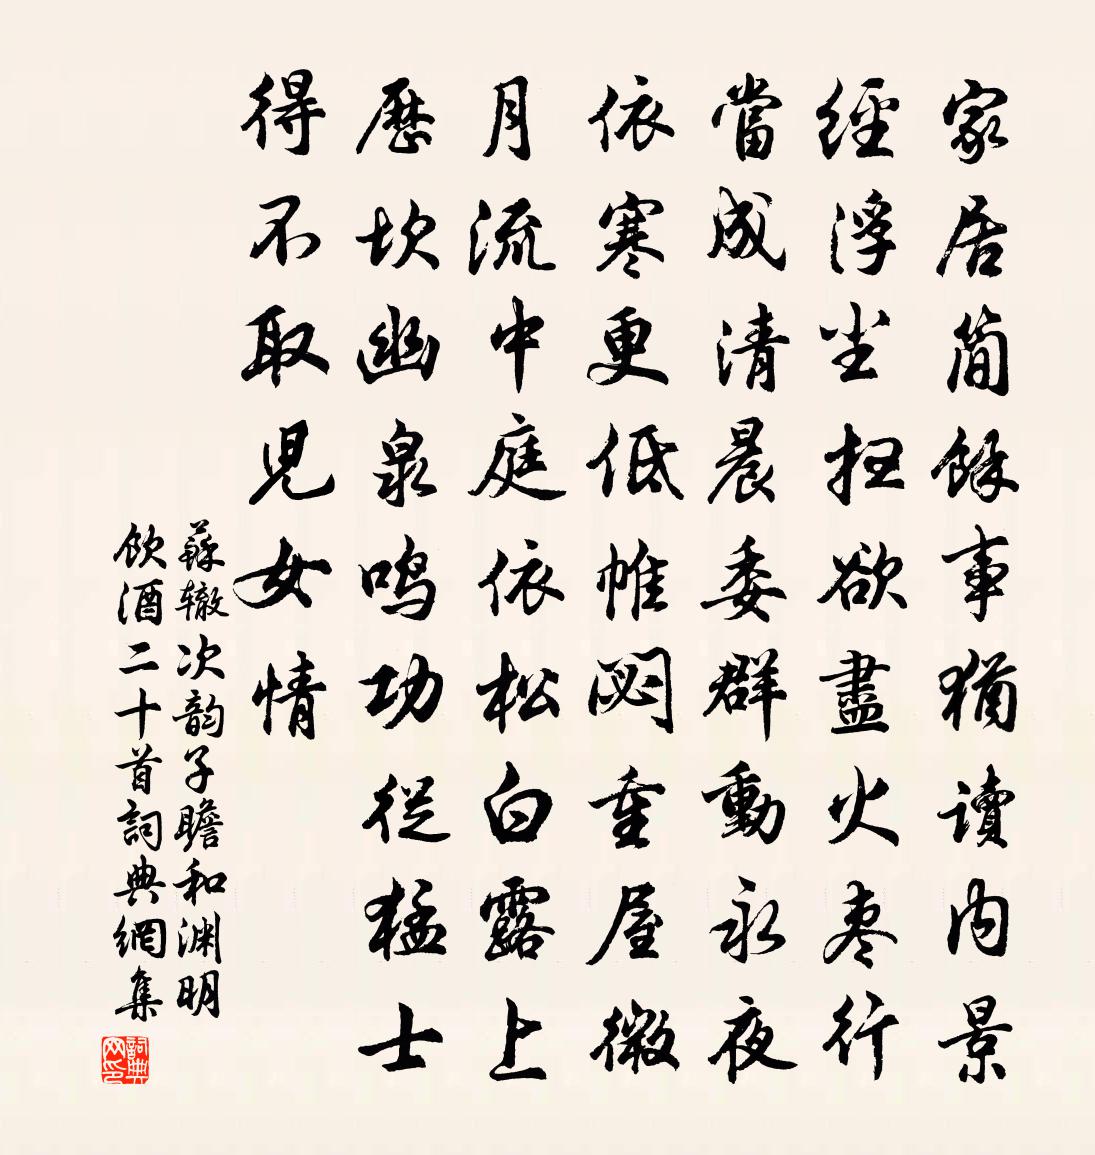 家居簡餘事猶讀内景
經浮坐掃欲盡火棗行
當成清晨委群動永夜
依寒更低帷閟重屋微
月流中庭依松白露上
歷坎幽泉鳴功從猛士
得不取児女情
蘇辙次韵子瞻和渊明
飲酒二十首詞典網集
詞典网印